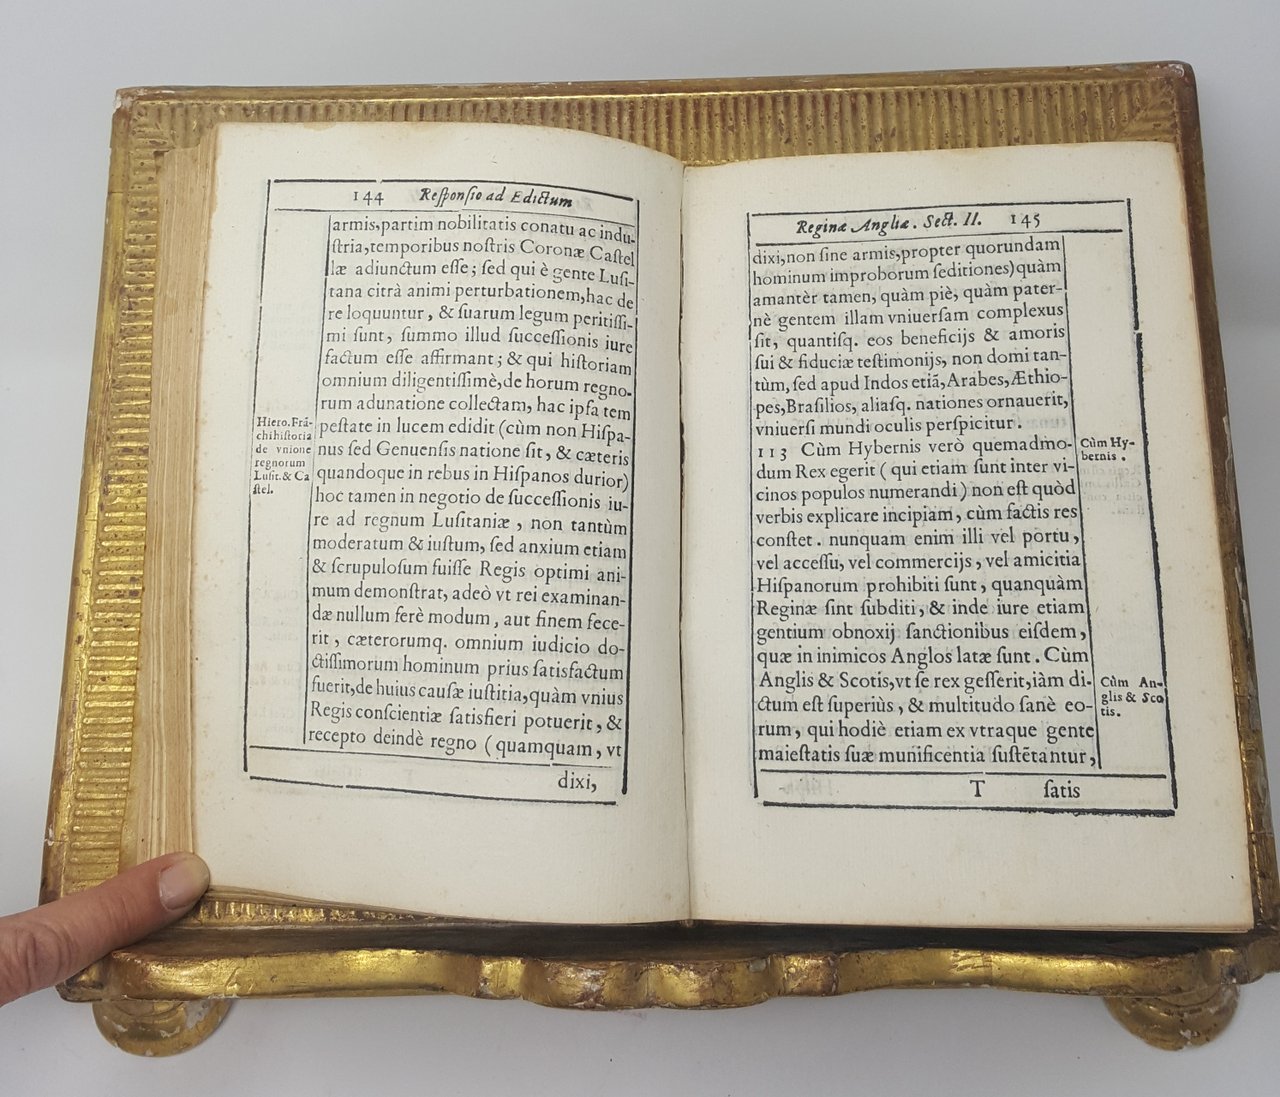 144 Responsio ad Edictum
armis,partim nobilitatis conatu ac indu-
stria,temporibus nostris Coronæ Castel
læ adiunctum esse; sed qui è gente Lusi-
tana citrà animi perturbationem,hac de
re loquuntur, & suarum legum peritissi-
mi sunt, summo illud successionis iure
factum esse affirmant; & qui historiam
omnium diligentissimè,de horum regno-
rum adunatione collectam, hac ipsa tem
pestate in lucem edidit (cùm non Hispa-
nus sed Genuensis natione sit, & cæteris
quandoque in rebus in Hispanos durior)
hoc tamen in negotio de successionis iu-
re ad regnum Lusitaniæ, non tantùm
moderatum & iustum, sed anxium etiam
& scrupulosum fuisse Regis optimi ani-
mum demonstrat, adeò vt rei examinan-
dæ nullum ferè modum, aut finem fece-
rit, cæterorumq. omnium iudicio do-
ctissimorum hominum prius satisfactum
fuerit,de huius causæ iustitia,quàm vnius
Regis conscientiæ satisfieri potuerit, &
recepto deindè regno (quamquam, vt
dixi,
Hiero.Frã-
chi historia
de vnione
regnorum
Lusit.& Ca
stel.
Reginæ Angliæ. Sect. II. 145
dixi,non sine armis,propter quorundam
hominum improborum seditiones)quàm
amantèr tamen, quàm piè, quàm pater-
nè gentem illam vniuersam complexus
sit, quantisq. eos beneficijs & amoris
sui & fiduciæ testimonijs, non domi tan-
tùm, sed apud Indos etiã,Arabes,Æthio-
pes,Brasilios, aliasq. nationes ornauerit,
vniuersi mundi oculis perspicitur.
113 Cùm Hybernis verò quemadmo-
dum Rex egerit (qui etiam sunt inter vi-
cinos populos numerandi) non est quòd
verbis explicare incipiam, cùm factis res
constet. nunquam enim illi vel portu,
vel accessu, vel commercijs, vel amicitia
Hispanorum prohibiti sunt, quanquàm
Reginæ sint subditi, & inde iure etiam
gentium obnoxij sanctionibus eisdem,
quæ in inimicos Anglos latæ sunt. Cùm
Anglis & Scotis,vt se rex gesserit,iàm di-
ctum est superiùs, & multitudo sanè eo-
rum, qui hodiè etiam ex vtraque gente
maiestatis suæ munificentia sustẽtantur,
T satis
Cùm Hy-
bernis.
Cùm An-
glis & Sco
tis.